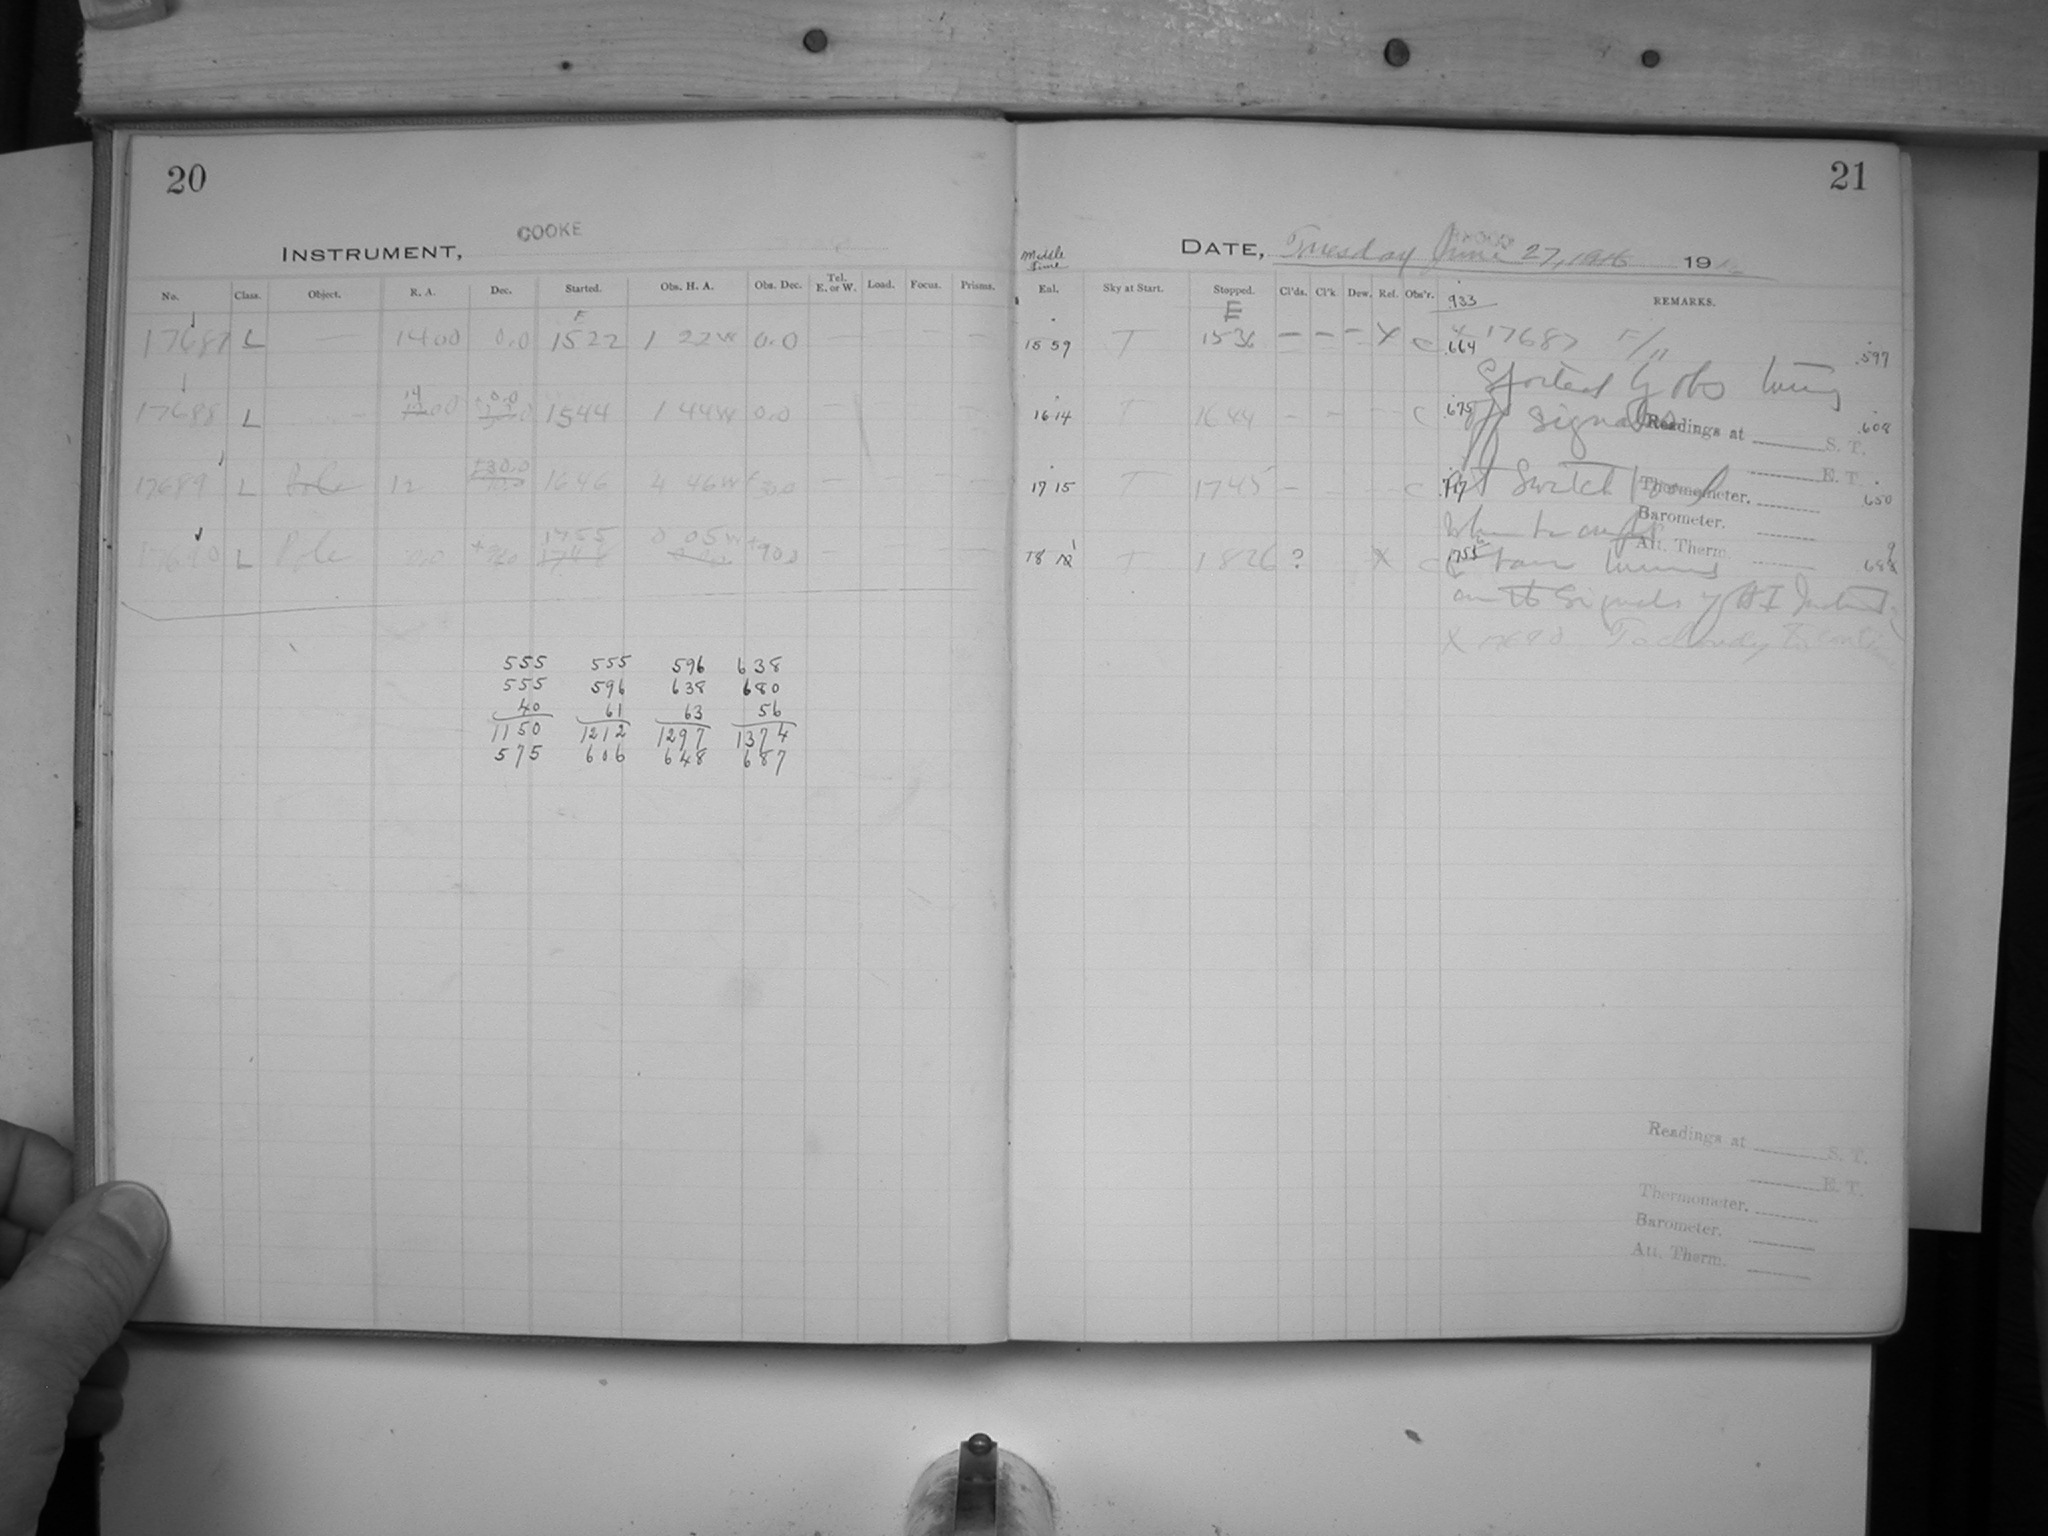 20
INSTRUMENT, COOKE
No. Class. Object. R. A. Dec. Started. Obs. H. A. Obs. Dec. Tel. E. or W. Load. Focus. Prisms.
F
17687 L — 1400 0.0 1522 1 22W 0.0 — — — —
14 0.0
17688 L 00 1544 1 44W 0.0
+30.0
17689 L Pole 12 1646 4 46W +30.0 — — — —
1755 0 05W
17690 L Pole 0.0 +90 +90.0 — — —
555 555 596 638
555 596 638 680
40 61 63 56
1150 1212 1297 1374
575 606 648 687
21
DATE, Tuesday June 27, 1916 19
Middle Time
Enl. Sky at Start. Stopped. Cl'ds. Cl'k. Dew. Ref. Obs'r. .933 REMARKS.
E
15 59 T 1536 — — — X C .664 X 17687 F/11 .597
Spoiled by obs
16 14 T 1644 — — — C .675 signals .608
Readings at S. T.
E. T.
17 15 T 1745 — C .717 at Switch Board .650
Thermometer.
Barometer.
Att. Therm.
18 T 1826 ? X C .755
on the signals of AI
X 17690 Too cloudy
Readings at S. T.
E. T.
Thermometer.
Barometer.
Att. Therm.